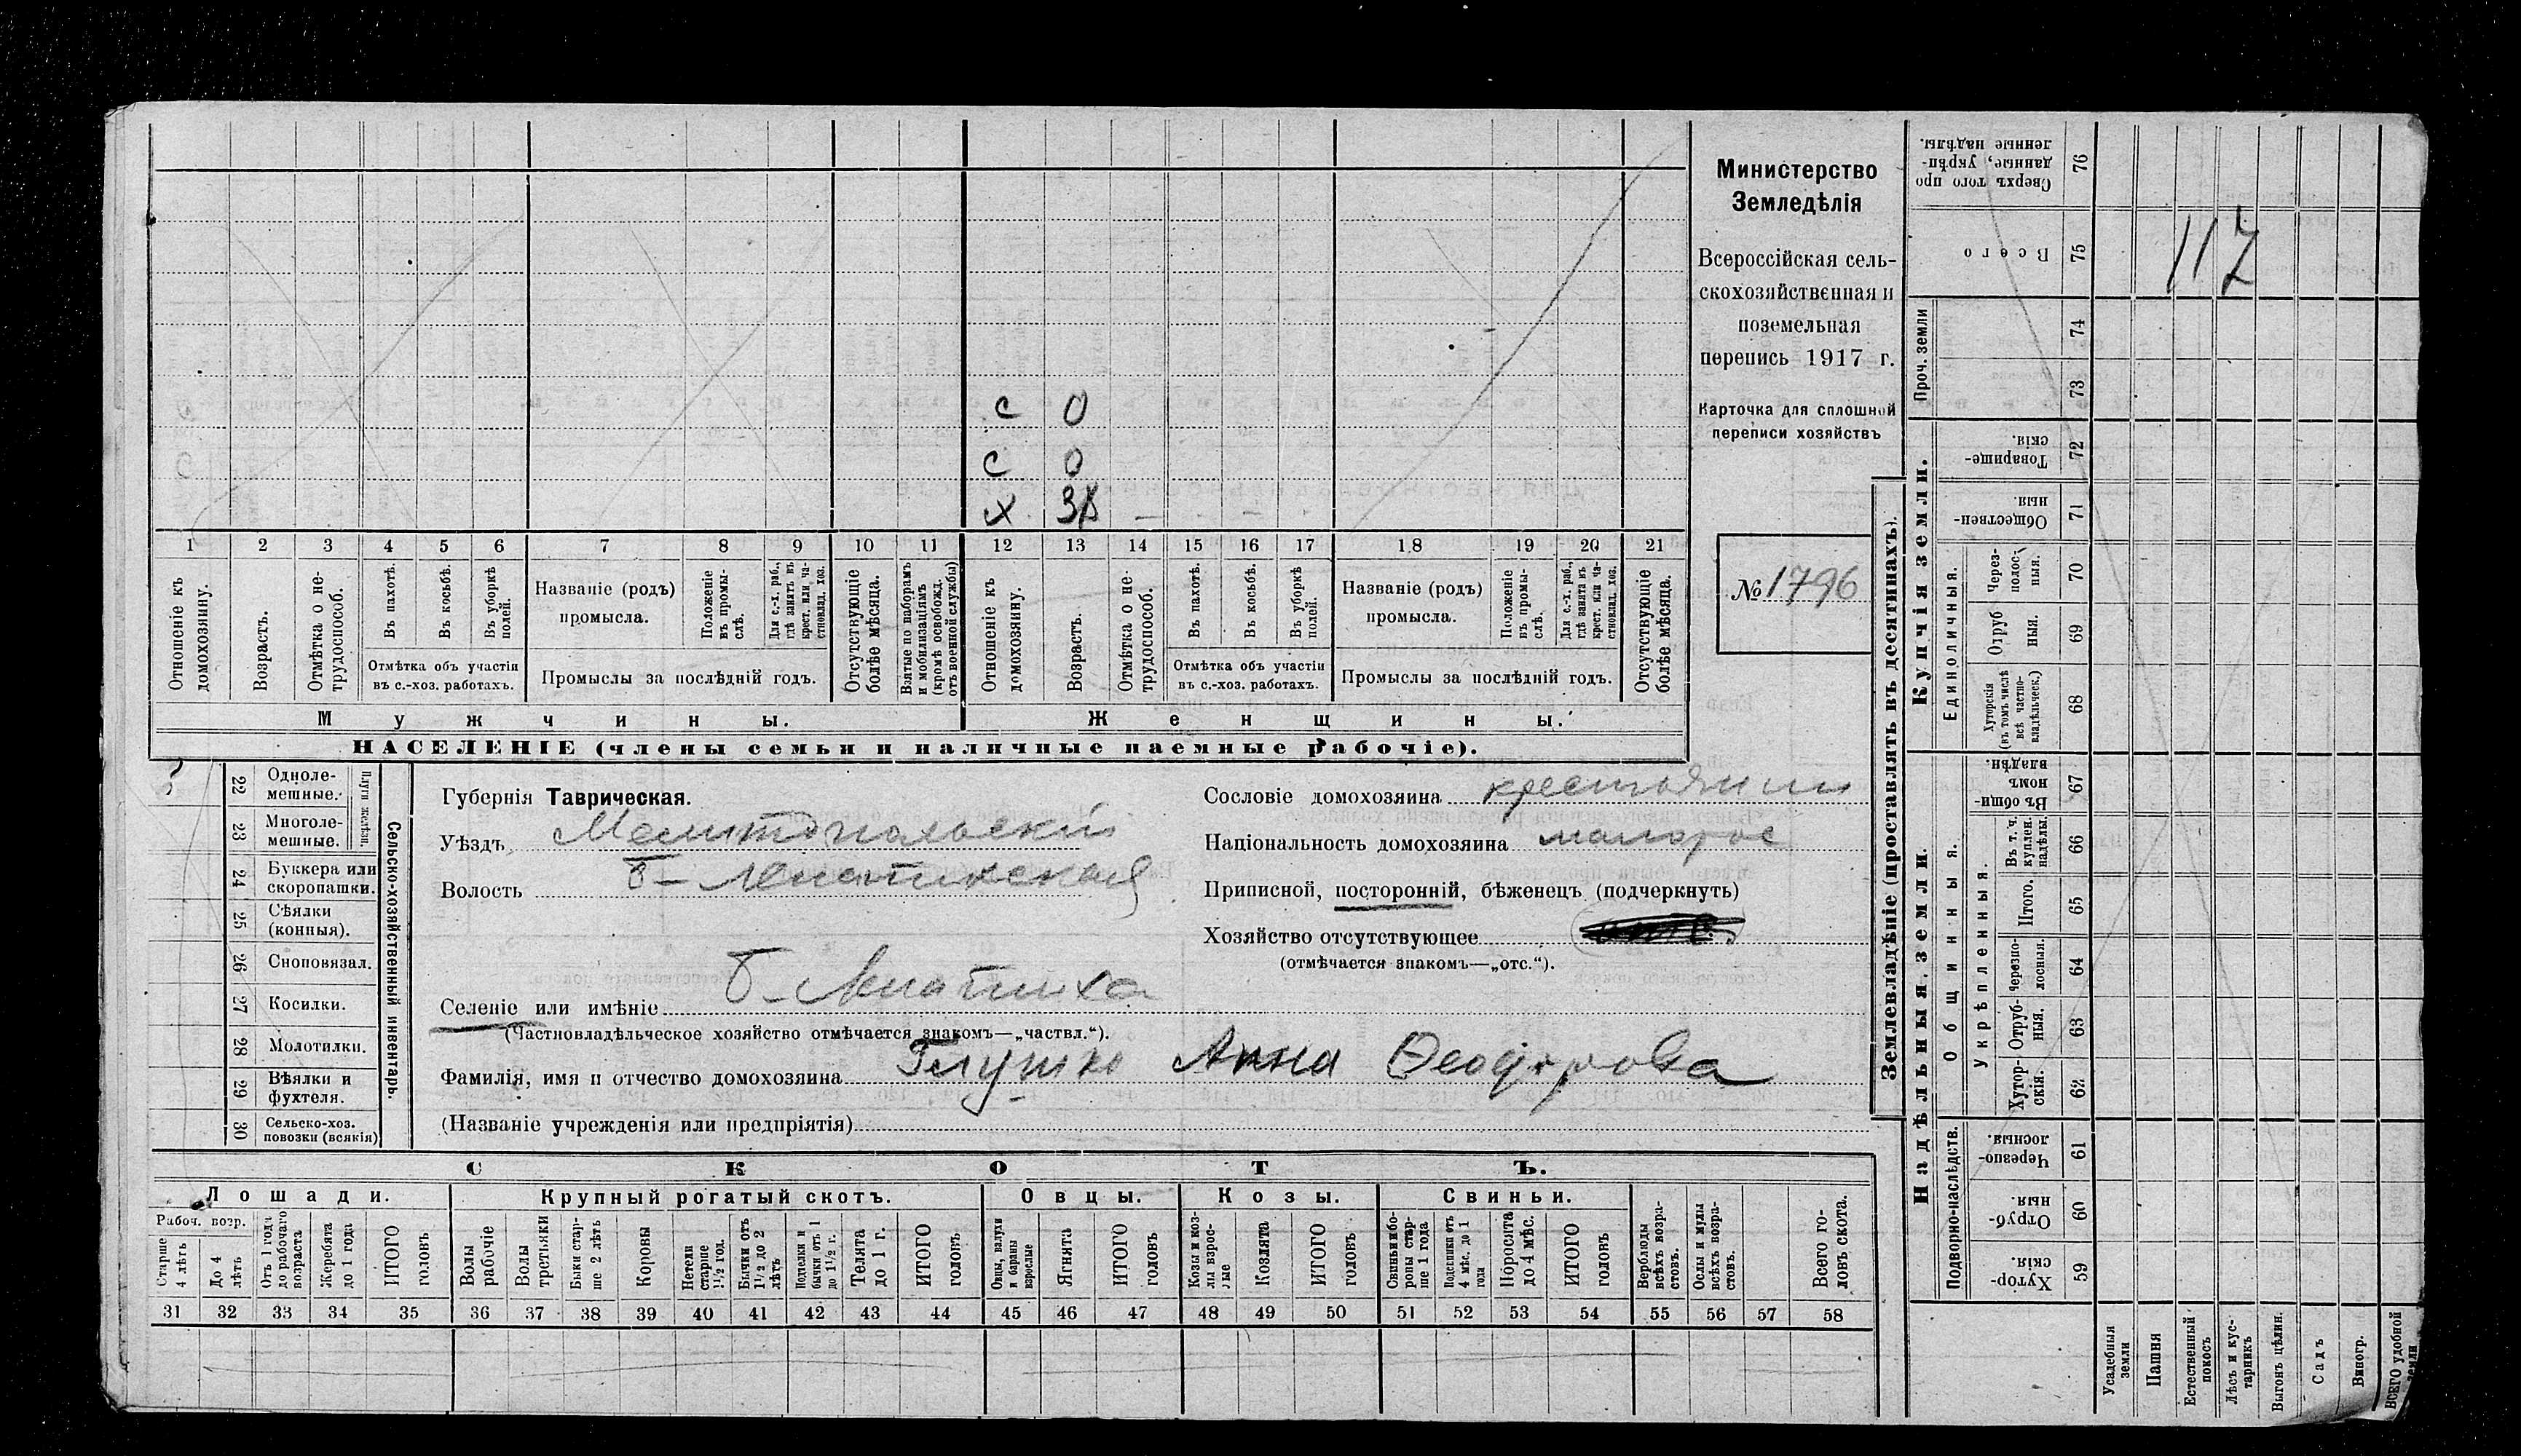 с 0
с 0
х 38
1 2 3 4 5 6 7 8 9 10 11 12 13 14 15 16 17 18 19 20 21
Отношеніе къ домохозяину.
Возрастъ.
Отмѣтка о не-трудоспособ.
Въ пахотѣ.
Въ косьбѣ.
Въ уборкѣ полей.
Отмѣтка объ участіи
въ с.-хоз. работахъ.
Названіе (родъ)
промысла.
Положеніе въ промы-слѣ.
Для с.-х. раб., гдѣ занятъ въ крест. или ча-стновлад. хоз.
Промыслы за послѣдній годъ.
Отсутствующіе болѣе мѣсяца.
Взятые по наборамъ и мобилизаціямъ (кромѣ освобожд. отъ военной службы)
Отношеніе къ домохозяину.
Возрастъ.
Отмѣтка о не-трудоспособ.
Въ пахотѣ.
Въ косьбѣ.
Въ уборкѣ полей.
Отмѣтка объ участіи
въ с.-хоз. работахъ.
Названіе (родъ)
промысла.
Положеніе въ промы-слѣ.
Для с.-х. раб., гдѣ занята въ крест. или ча-стновлад. хоз.
Промыслы за послѣдній годъ.
Отсутствующіе болѣе мѣсяца.
Мужчины. Женщины.
НАСЕЛЕНІЕ (члены семьи и наличные наемные рабочіе).
Министерство
Земледѣлія
Всероссійская сель-
скохозяйственная и
поземельная
перепись 1917 г.
Карточка для сплошной
переписи хозяйствъ
№ 1796
22 Одноле-
мешные.
23 Многоле-
мешные.
Плуги желѣзн.
24 Буккера или
скоропашки.
25 Сѣялки
(конныя).
26 Сноповязал.
27 Косилки.
28 Молотилки.
29 Вѣялки и
фухтеля.
30 Сельско-хоз.
повозки (всякія)
Сельско-хозяйственный инвентарь.
Губернія Таврическая.
Уѣздъ Мелитопольскій
Волость Б-Лепатихская
Селеніе или имѣніе Б-Лепатиха
(Частновладѣльческое хозяйство отмѣчается знакомъ—„частвл.“).
Фамилія, имя и отчество домохозяина Глушко Анна Ѳеодорова
(Названіе учрежденія или предпріятія)
Сословіе домохозяина крестьянин
Національность домохозяина малорос
Приписной, посторонній, бѣженецъ (подчеркнуть)
Хозяйство отсутствующее
(отмѣчается знакомъ—„отс.“).
СКОТЪ.
Лошади. Крупный рогатый скотъ. Овцы. Козы. Свиньи.
Рабоч. возр.
Старше 4 лѣтъ
До 4 лѣтъ
Отъ 1 года до рабочаго возраста
Жеребята до 1 года
ИТОГО головъ
Волы рабочіе
Волы третьяки
Быки стар-ше 2 лѣтъ
Коровы
Нетели старше 1½ год.
Бычки отъ 1½ до 2 лѣтъ
Подтелки и бычки отъ 1 до 1½ г.
Телята до 1 г.
ИТОГО головъ
Овцы, валухи и бараны взрослые
Ягнята
ИТОГО головъ
Козы и коз-лы взрос-лые
Козлята
ИТОГО головъ
Свиньи и бо-ровы стар-ше 1 года
Подсвинки отъ 4 мѣс. до 1 года
Поросята до 4 мѣс.
ИТОГО головъ
Верблюды всѣхъ возра-стовъ.
Ослы и мулы всѣхъ возра-стовъ.
Всего го-ловъ скота.
31 32 33 34 35 36 37 38 39 40 41 42 43 44 45 46 47 48 49 50 51 52 53 54 55 56 57 58
Землевладѣніе (проставлять въ десятинахъ).
Надѣльныя земли. Купчія земли.
Проч. земли
Подворно-наслѣдств.
Общинныя.
Укрѣпленныя.
Единоличныя.
Сверхъ того про
данные, укрѣп-
ленные надѣлы. 76
Всего 75
117
74
73
Товарище-
скія. 72
Обществен-
ныя 71
Через-
полос-
ныя. 70
Отруб
ныя. 69
Хуторскія
(въ томъ числѣ
всѣ частно-
владѣльческ.) 68
Въ общи-
номъ
владѣн. 67
Въ т. ч.
куплен.
надѣлы. 66
Итого. 65
Черезпо-
лосныя. 64
Отруб-
ныя. 63
Хутор-
скія. 62
Черезпо-
лосныя. 61
Отруб-
ныя. 60
Хутор-
скія. 59
Усадебныя земли
Пашня
Естественный покосъ
Лѣсъ и кус-тарникъ
Выгонъ цѣлин.
Садъ
Виногр.
ВСЕГО удобной земли